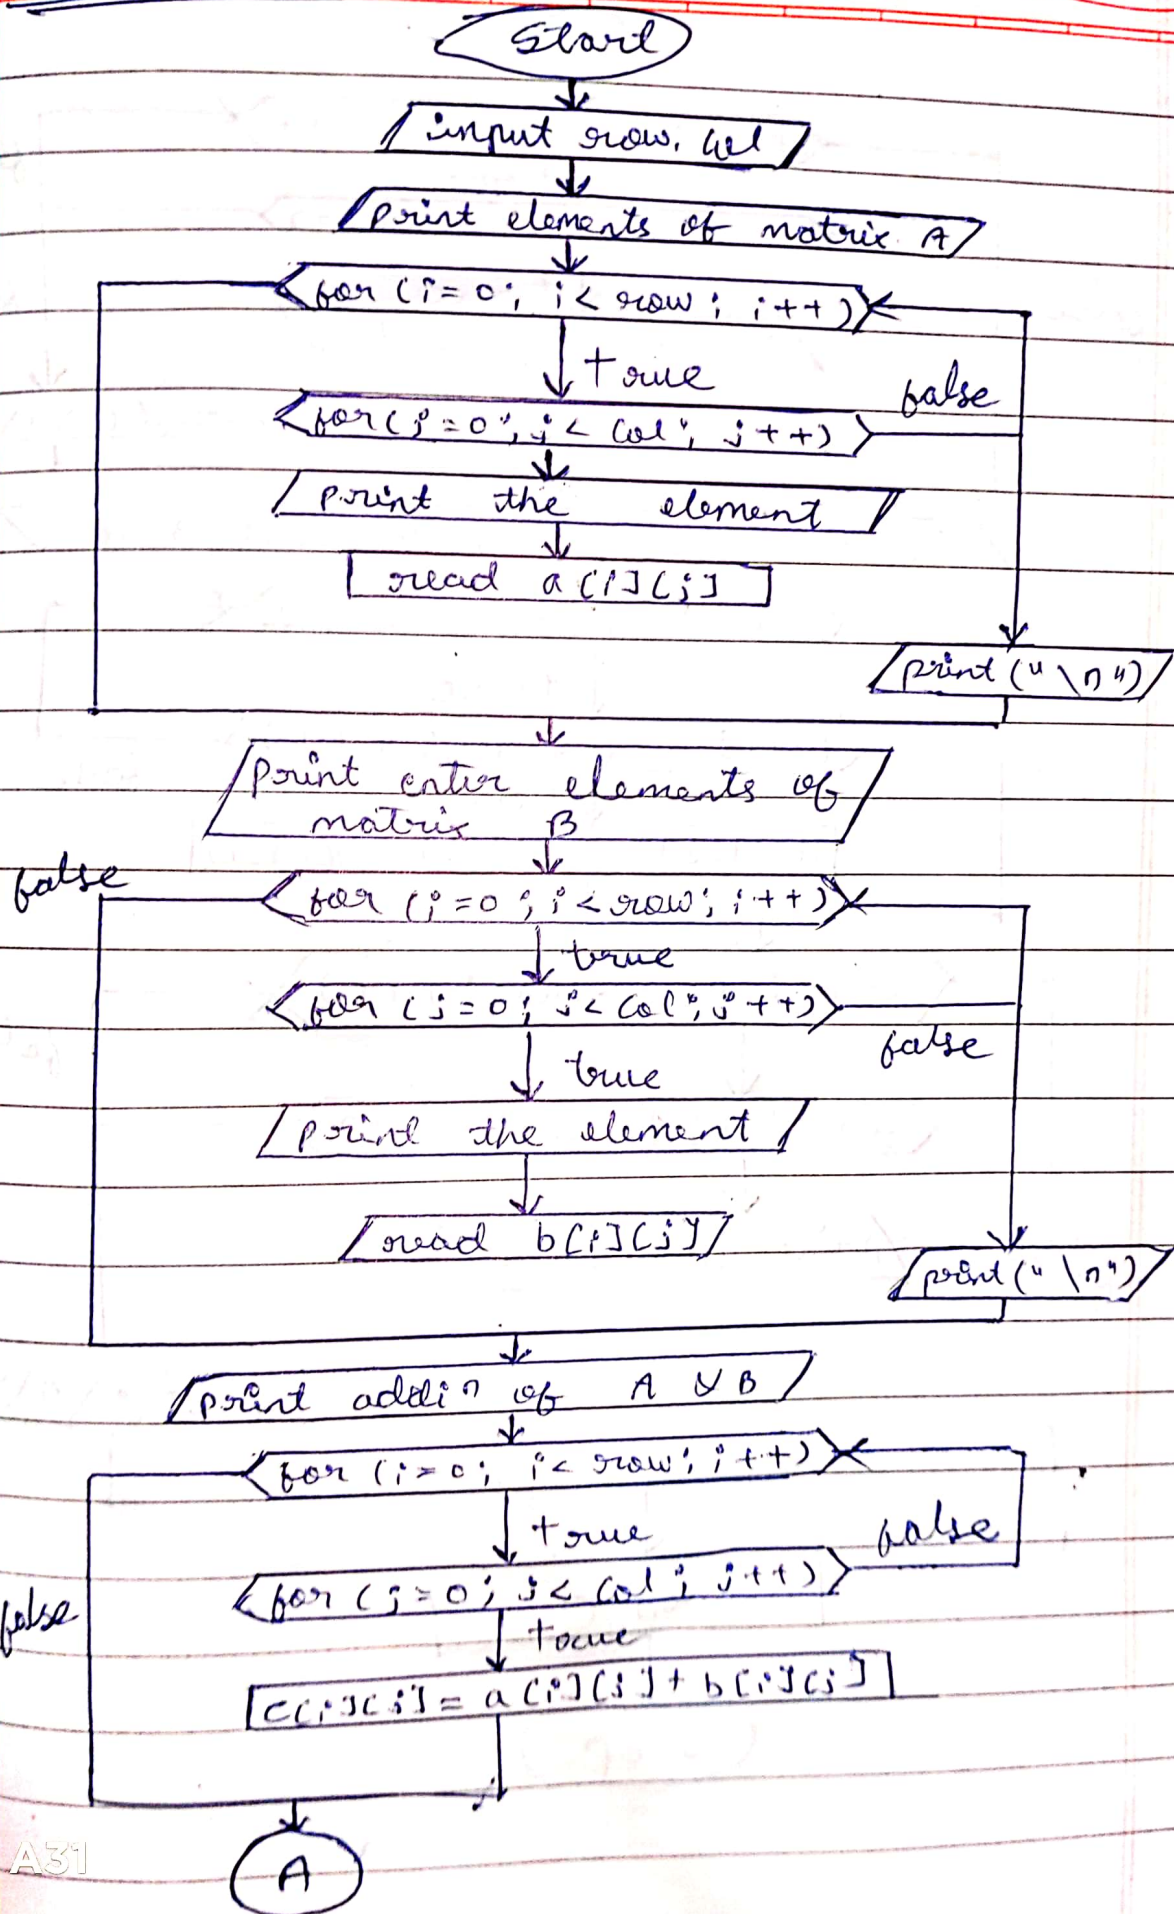 Start
input row, col
print elements of matrix A
for (i=0; i<row; i++)
true
false
for (j=0; j<col; j++)
print the element
read a[i][j]
print("\n")
print enter elements of
matrix B
false
for (i=0; i<row; i++)
true
for (j=0; j<col; j++)
false
true
print the element
read b[i][j]
print("\n")
print addin of A & B
for (i=0; i<row; i++)
true
false
for (j=0; j<col; j++)
false
true
c[i][j] = a[i][j] + b[i][j]
A
A31